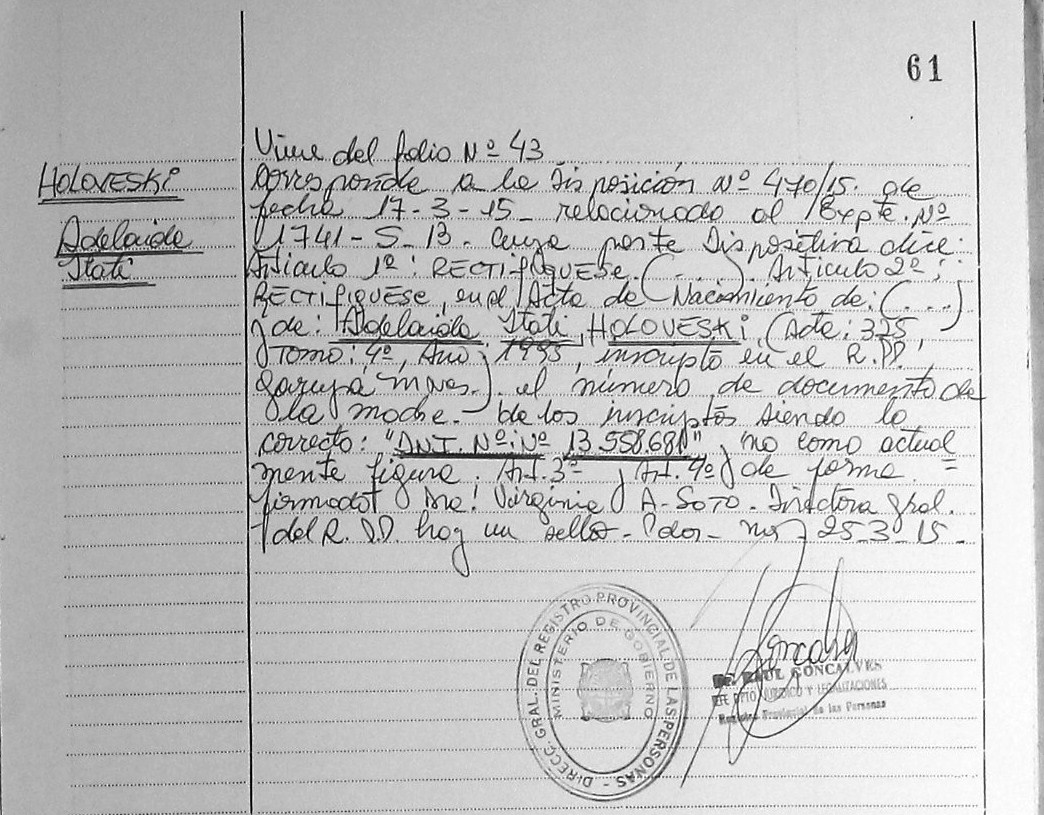 61
Viene del folio Nº 43
HOLOVESKI
Adelaida
Itati
Corresponde a la Disposición Nº 470/15. de
fecha 17-3-15- relacionado al Expte. Nº
1741-S-13. cuya parte Dispositiva dice:
Artículo 1º: RECTIFIQUESE (...). Artículo 2º:
RECTIFIQUESE, en el Acta de Nacimiento de: (...)
y de: Adelaida Itati HOLOVESKI (Acta: 325,
Tomo: 4º, Año: 1995, inscripto en el R.PP.
Garupá Mnes.) el número de documento de
la madre - de los inscriptos siendo lo
correcto: "DNI. Nº: Nº 13.558.681" y no como actual
mente figura. Art. 3º y Art. 4º) de forma =
firmado: Dra! Virginia A-SOTO. Directora Gral.
del R.PP. hay un sello - Pdas - Mnes 25-3-15-
DIRECC. GRAL. DEL REGISTRO PROVINCIAL DE LAS PERSONAS -
MINISTERIO DE GOBIERNO
Dr. RAUL GONCALVES
JEFE DPTO JURIDICO Y LEGALIZACIONES
Registro Provincial de las Personas